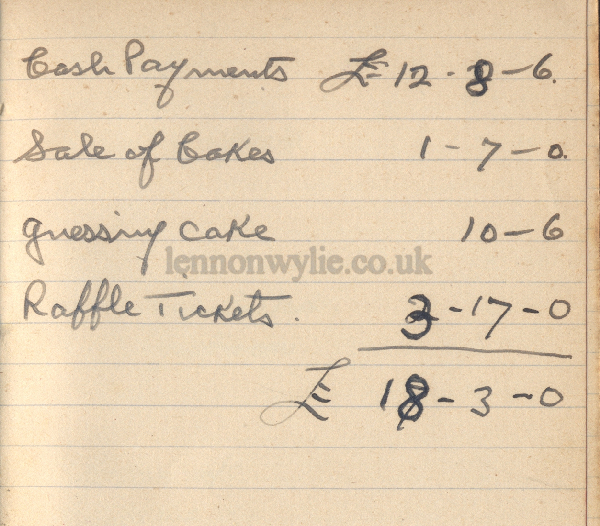 Cash Payments £12-8-6.
Sale of Cakes 1-7-0.
guessing cake 10-6
lennonwylie.co.uk
Raffle Tickets. 3-17-0
£ 18-3-0